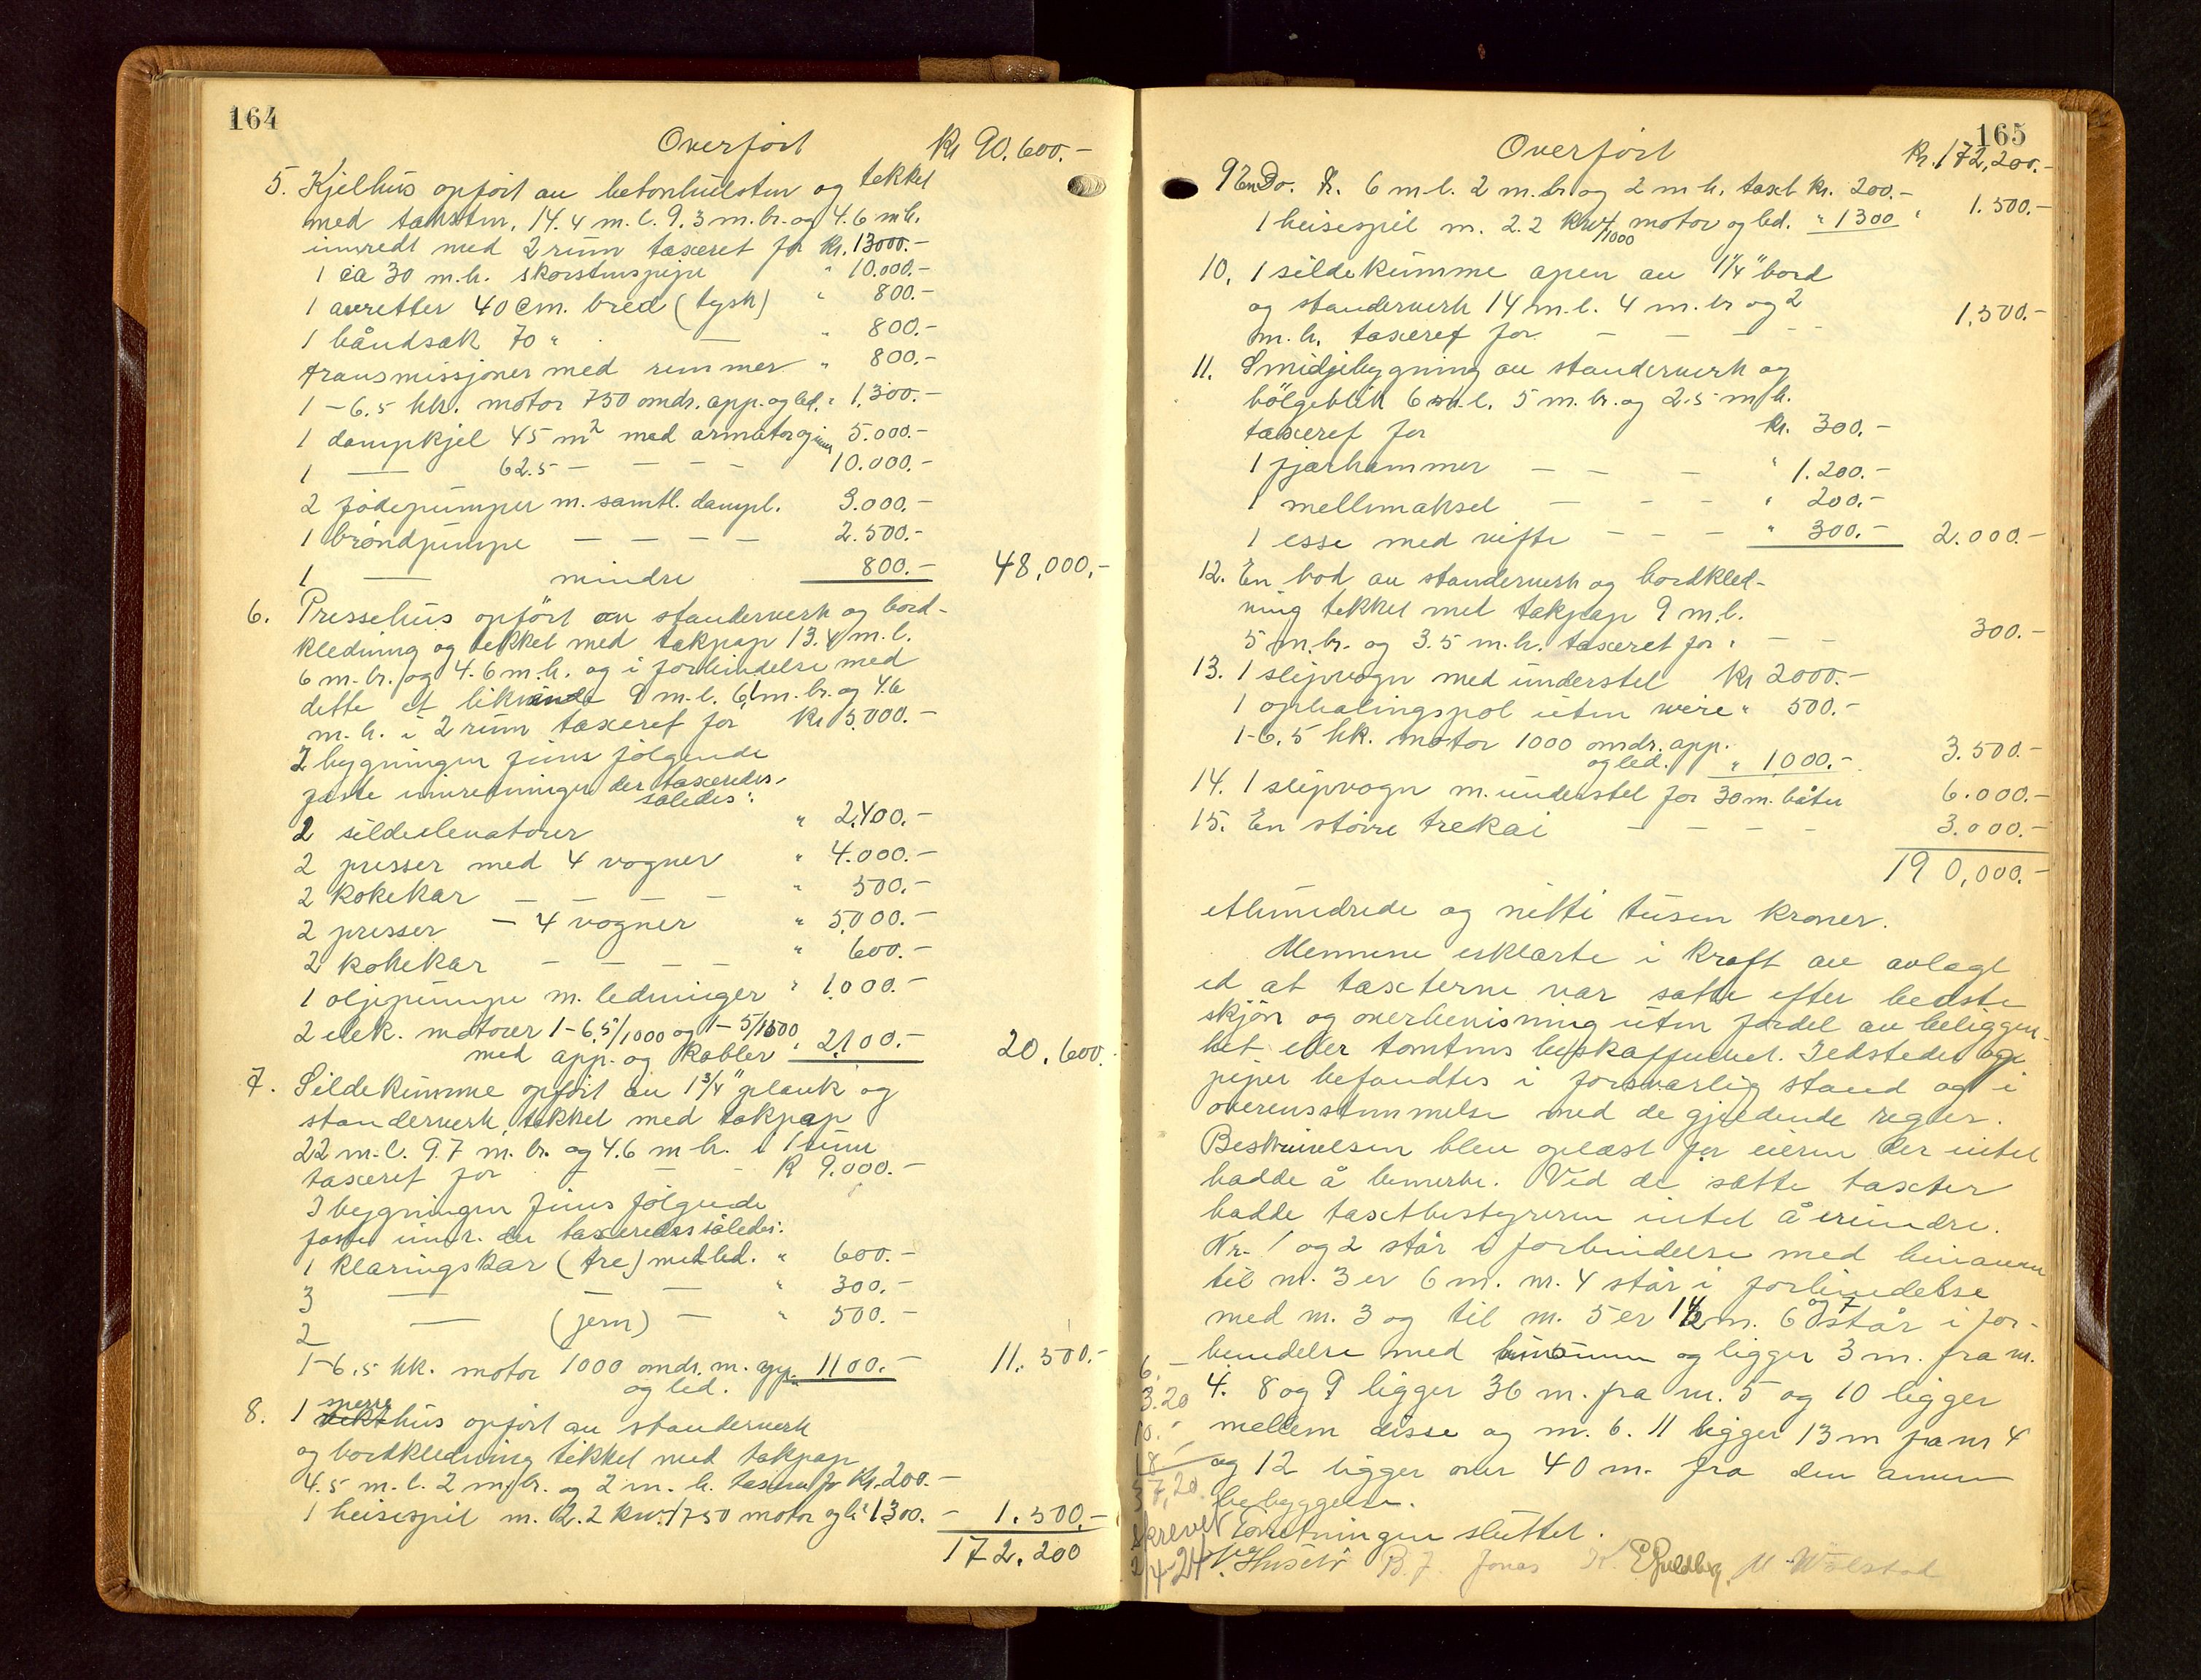 164
Overført Kr 90.600.-
5. Kjelhus opført av betonhulsten og tekket
med taksten, 14.4 m.l. 9.3 m.br. og 4.6 m h.
innredt med 2 rum taxeret for Kr. 13000.-
1 ca 30 m.h. skorstenspipe " 10.000.-
1 avretter 40 cm. bred (tysk) " 800.-
1 båndsak 70 " — " 800.-
transmissjoner med remmer " 800.-
1 - 6.5 hk. motor 750 omdr. app. og led. " 1,300.-
1 dampkjel 45 m2 med armatur og 5.000.-
1 — 62.5 - - - - 10.000.-
2 fødepumper m. samtl. dampl. 3.000.-
1 brøndpumpe - - - - 2.500.-
1 — mindre 800.- 48,000,-
6. Pressehus opført av standerverk og bord-
kledning og tekket med takpap 13.4 m.l.
6 m.br. og 4.6 m.h. og i forbindelse med
dette et liknende 9 m.l. 6,1 m.br. og 4.6
m.h. i 2 rum taxeret for Kr 5.000.-
I bygningen fins følgende
faste innredninger der taxeredes
således:
2 sildeelevatorer " 2,400.-
2 presser med 4 vogner " 4.000.-
2 kokekar - - - " 500.-
2 presser - 4 vogner " 5,000.-
2 kokekar - - - - " 600.-
1 oljepumpe m. ledninger " 1,000.-
2 elek. motorer 1-6,5/1000 og 1-5/1500
med app. og kabler " 2,100.- 20.600.
7. Sildekumme opført av 1 3/4" plank og
standerverk, tekket med takpap
22 m.l. 9.7 m.br. og 4.6 m h. i 1 rum
taxeret for - - - K 9,000.-
I bygningen fins følgende
faste innr. der taxeredes således:
1 klaringskar (tre) med led. " 600.-
3 — — " 300.-
2 — (jern) - " 500.-
1-6,5 hk. motor 1000 omdr. m. app. 1100.- 11.500.-
og led.
8. 1 hus opført av standerverk
og bordkledning tekket med takpap
4.5 m.l. 2 m.br. og 2 m.h. taxeret for Kr. 200.-
1 heisespil m. 2.2 kw. 1750 motor og l. 1300.- 1.500.-
172.200
165
Overført Kr. 172,200.-
9 En Do. 6 m l. 2 m.br. og 2 m h. taxt kr. 200.-
1 heisespil m. 2.2 kw/1000 motor og led. " 1300 " 1.500.-
10. 1 sildekumme åpen av 1 1/4" bord
og standerverk 14 m.l. 4 m.br og 2
m.h. taxeret for - - - - 1,500.-
11. Smidjebygning av standerverk og
bølgeblik 6 m.l. 5 m.br. og 2.5 m h.
taxeret for kr. 300.-
1 fjærhammer - - - " 1.200.-
1 mellemaksel - - - " 200.-
1 esse med vifte - - - " 300.- 2.000.-
12. En bod av standerverk og bordkled-
ning tekket met takpap 9 m.l.
5 m.br. og 3.5 m.h. taxeret for - - 300.-
13. 1 slipvogn med understel Kr 2000.-
1 ophalingspol uten wire " 500.-
1-6,5 hk. motor 1000 omdr. app.
og led. " 1,000.- 3.500.-
14. 1 slipvogn m. understel for 30 m. båter 6.000.-
15. En større trekai - - - - 3.000.-
190,000.-
ethundrede og nitti tusen kroner.
Mennene erklærte i kraft av avlagt
ed at taxterne var satte efter bedste
skjøn og overbevisning uten fordel av beliggen-
het eller tomtens beskaffenhet. Ildstedet og
piper befandtes i forsvarlig stand og i
overensstemmelse med de gjeldende regler.
Beskrivelsen blev oplæst for eieren der intet
hadde å bemerke. Ved de satte taxter
hadde taxtbestyreren intet å erindre.
Nr. 1 og 2 står i forbindelse med hinannen
til nr. 3 er 6 m. nr. 4 står i forbindelse
med nr. 3 og til nr. 5 er 1 1/2 m. 6 og 7 står i for-
bindelse med hinannen og ligger 3 m. fra nr.
4. 8 og 9 ligger 36 m. fra nr. 5 og 10 ligger
mellem disse og nr. 6. 11 ligger 13 m fra nr 4
og 12 ligger over 40 m. fra den annen
bebyggelse.
Forretningen sluttet.
6. -
3.20
10. -
18
37,20
skrevet
2/4-24
Husebø B. J. Jonas K. E Guldberg. M. Wolstad